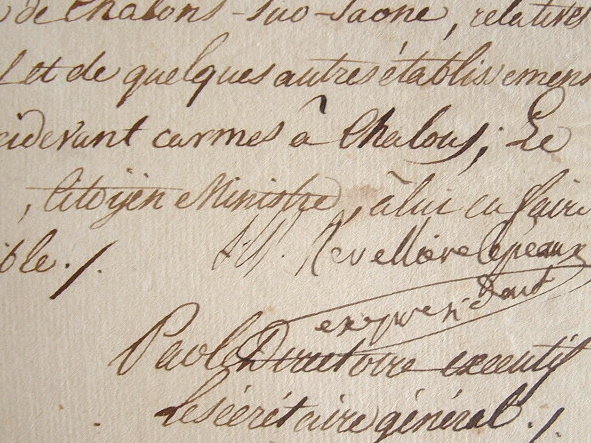 de Chalons-sur-Saone, relatives
et de quelques autres établissemens
cidevant carmes à Chalons; Le
, Citoyen Ministre, à lui en faire
ible ./.
Revellière lepeaux
Par le Directoire executif
Le sécrétaire général ./.